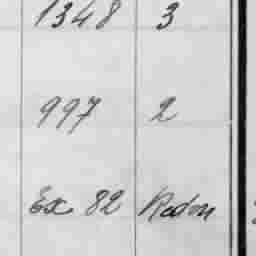 1348 3
997 2
Ex 82 Radon